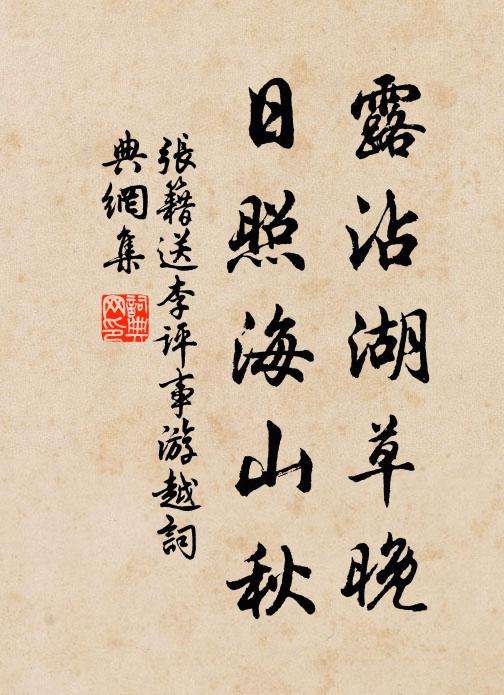 露沾湖草晚
日照海山秋
張籍送李评事游越詞
典網集
詞典
网印